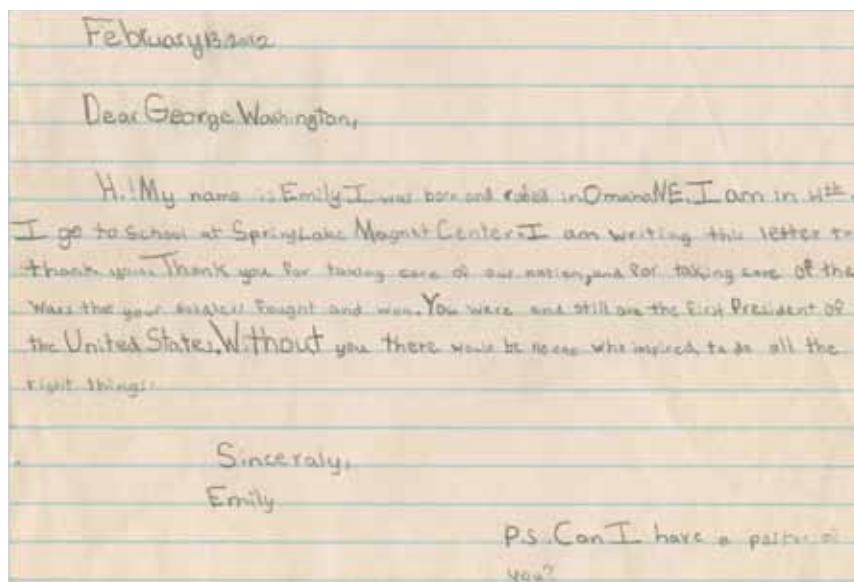 February 13, 2012
Dear George Washington,
Hi! My name is Emily I was born and raised in Omaha NE. I am in 4th.
I go to School at Spring Lake Magnet Center. I am writing this letter to
thank you. Thank you for taking care of our nation, and for taking care of the
wars that your fought and won. You were and still are the first President of
the United States. Without you there would be no one who inspired to do all the
right things.
Sinceraly,
Emily
P.S. Can I have a poster of
you?